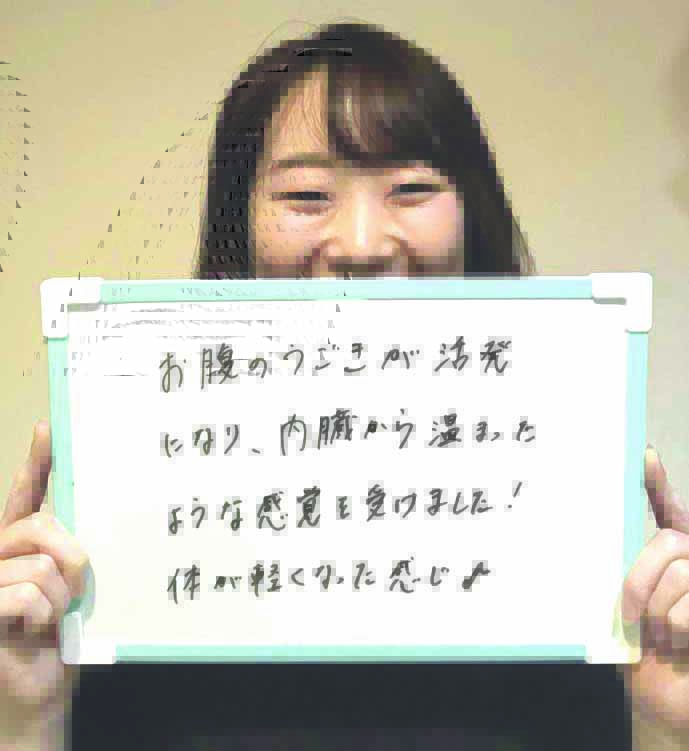 お腹のうごきが活発
になり、内臓から温まった
ような感覚を受けました!
体が軽くなった感じ♪